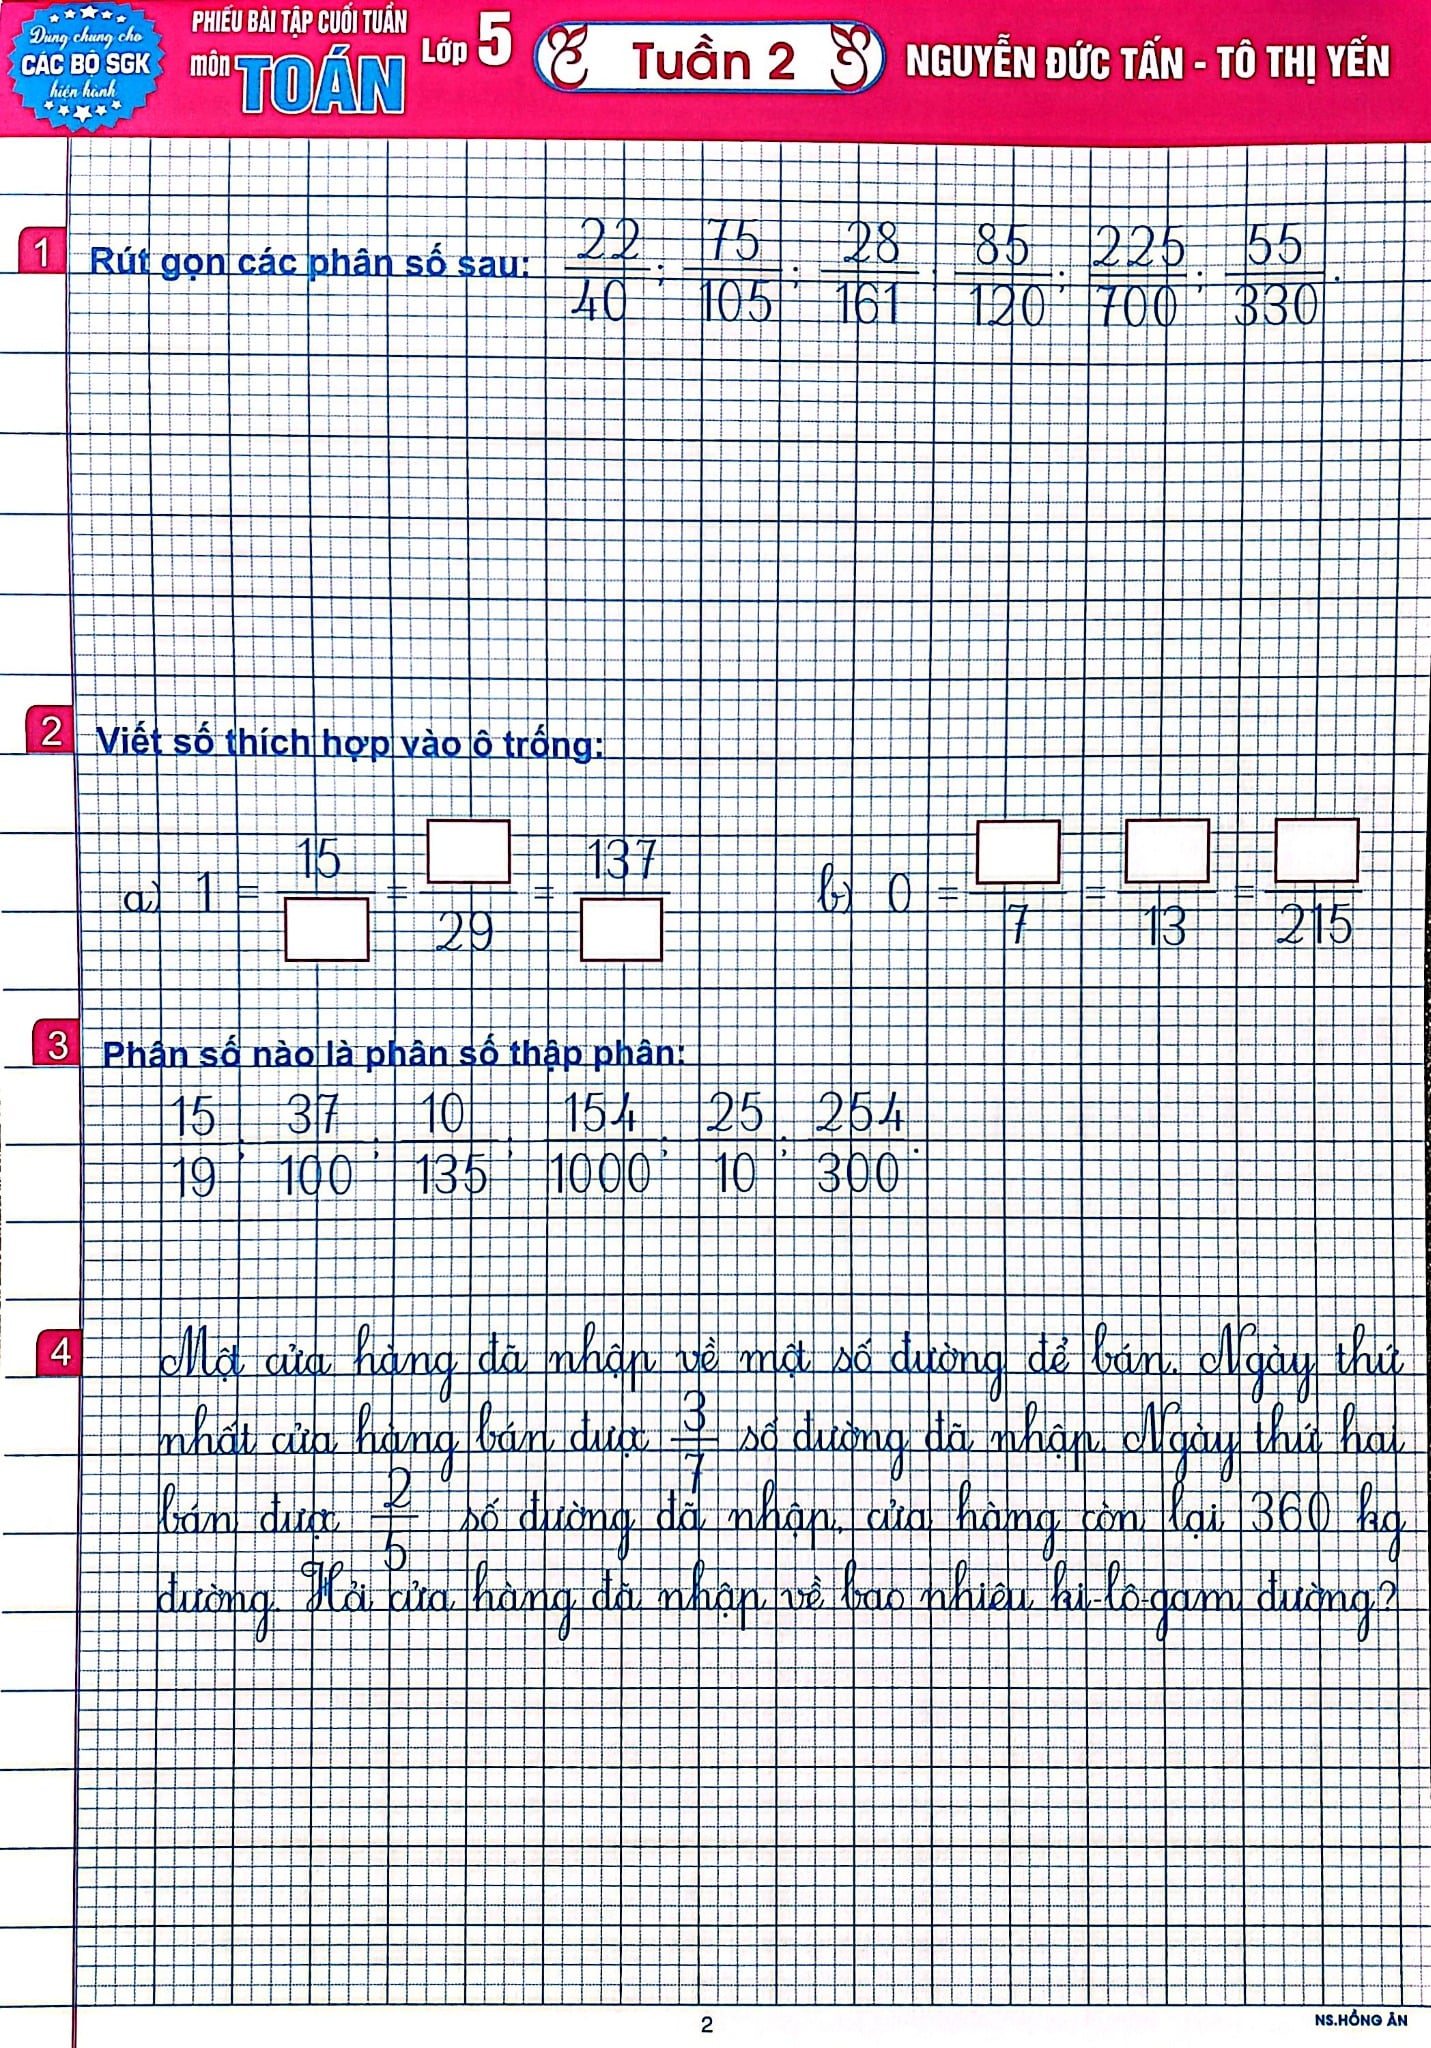 Dùng chung cho
CÁC BỘ SGK
hiện hành
PHIẾU BÀI TẬP CUỐI TUẦN
môn TOÁN Lớp 5
Tuần 2
NGUYỄN ĐỨC TẤN - TÔ THỊ YẾN
1 Rút gọn các phân số sau: 22/40 ; 75/105 ; 28/161 ; 85/120 ; 225/700 ; 55/330 .
2 Viết số thích hợp vào ô trống:
a) 1 = 15/□ = □/29 = 137/□ b) 0 = □/7 = □/13 = □/215
3 Phân số nào là phân số thập phân:
15/19 ; 37/100 ; 10/135 ; 154/1000 ; 25/10 ; 254/300 .
4 Một cửa hàng đã nhập về một số đường để bán. Ngày thứ
nhất cửa hàng bán được 3/7 số đường đã nhập. Ngày thứ hai
bán được 2/5 số đường đã nhập, cửa hàng còn lại 360 kg
đường. Hỏi cửa hàng đã nhập về bao nhiêu ki-lô-gam đường?
2
NS.HỒNG ÂN